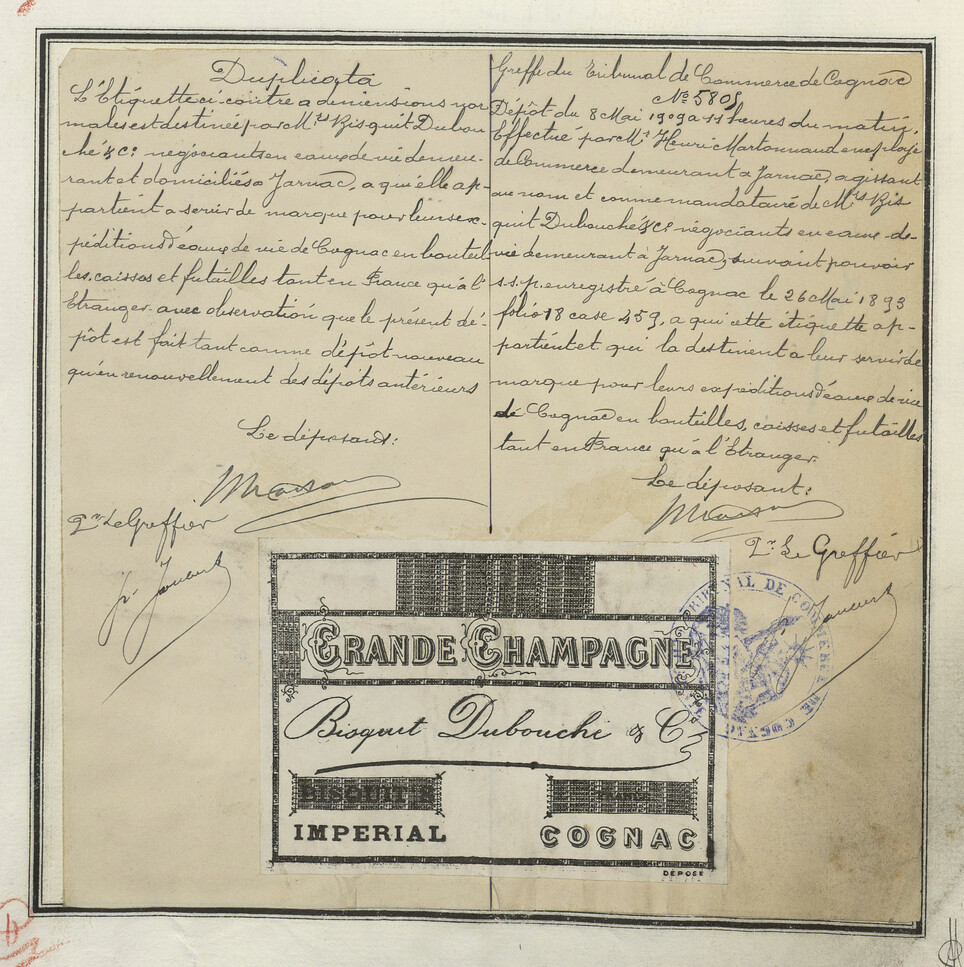 Duplicata
L'Etiquette ci-contre a dimensions nor
males est destinée par Mrs Bisquit Dubou
ché & Co négociants en eaux de vie demeu-
rant et domiciliés a Jarnac, a qui elle ap-
partient a servir de marque pour leurs ex-
péditions d'eaux de vie de Cognac en bouteil
les, caisses et futailles tant en France qu'à l'
Etranger avec observation que le présent dé-
pôt est fait tant comme dépôt nouveau
qu'en renouvellement des dépôts antérieurs
Le déposant:
Pr Le Greffier
Greffe du Tribunal de Commerce de Cognac
No 5805
Dépôt du 8 Mai 1909 a 11 heures du matin.
Effectué par Mr Henri Martonnaud employé
de Commerce demeurant à Jarnac, agissant
au nom et comme mandataire de Mrs Bis
quit Dubouché & Co négociants en eaux-de-
vie demeurant à Jarnac, suivant pouvoir
s.s.p. enregistré à Cognac le 26 Mai 1893
folio 18 case 459, a qui cette étiquette ap-
partient et qui la destinent a leur servir de
marque pour leurs expéditions d'eaux de vie
de Cognac en bouteilles, caisses et futailles
tant en France qu'à l'Etranger.
Le déposant:
Pr Le Greffier
GRANDE CHAMPAGNE
Bisquit Dubouché & Co
BISQUIT'S
FRANCE
IMPERIAL
COGNAC
DÉPOSÉ
TRIBUNAL DE COMMERCE DE COGNAC